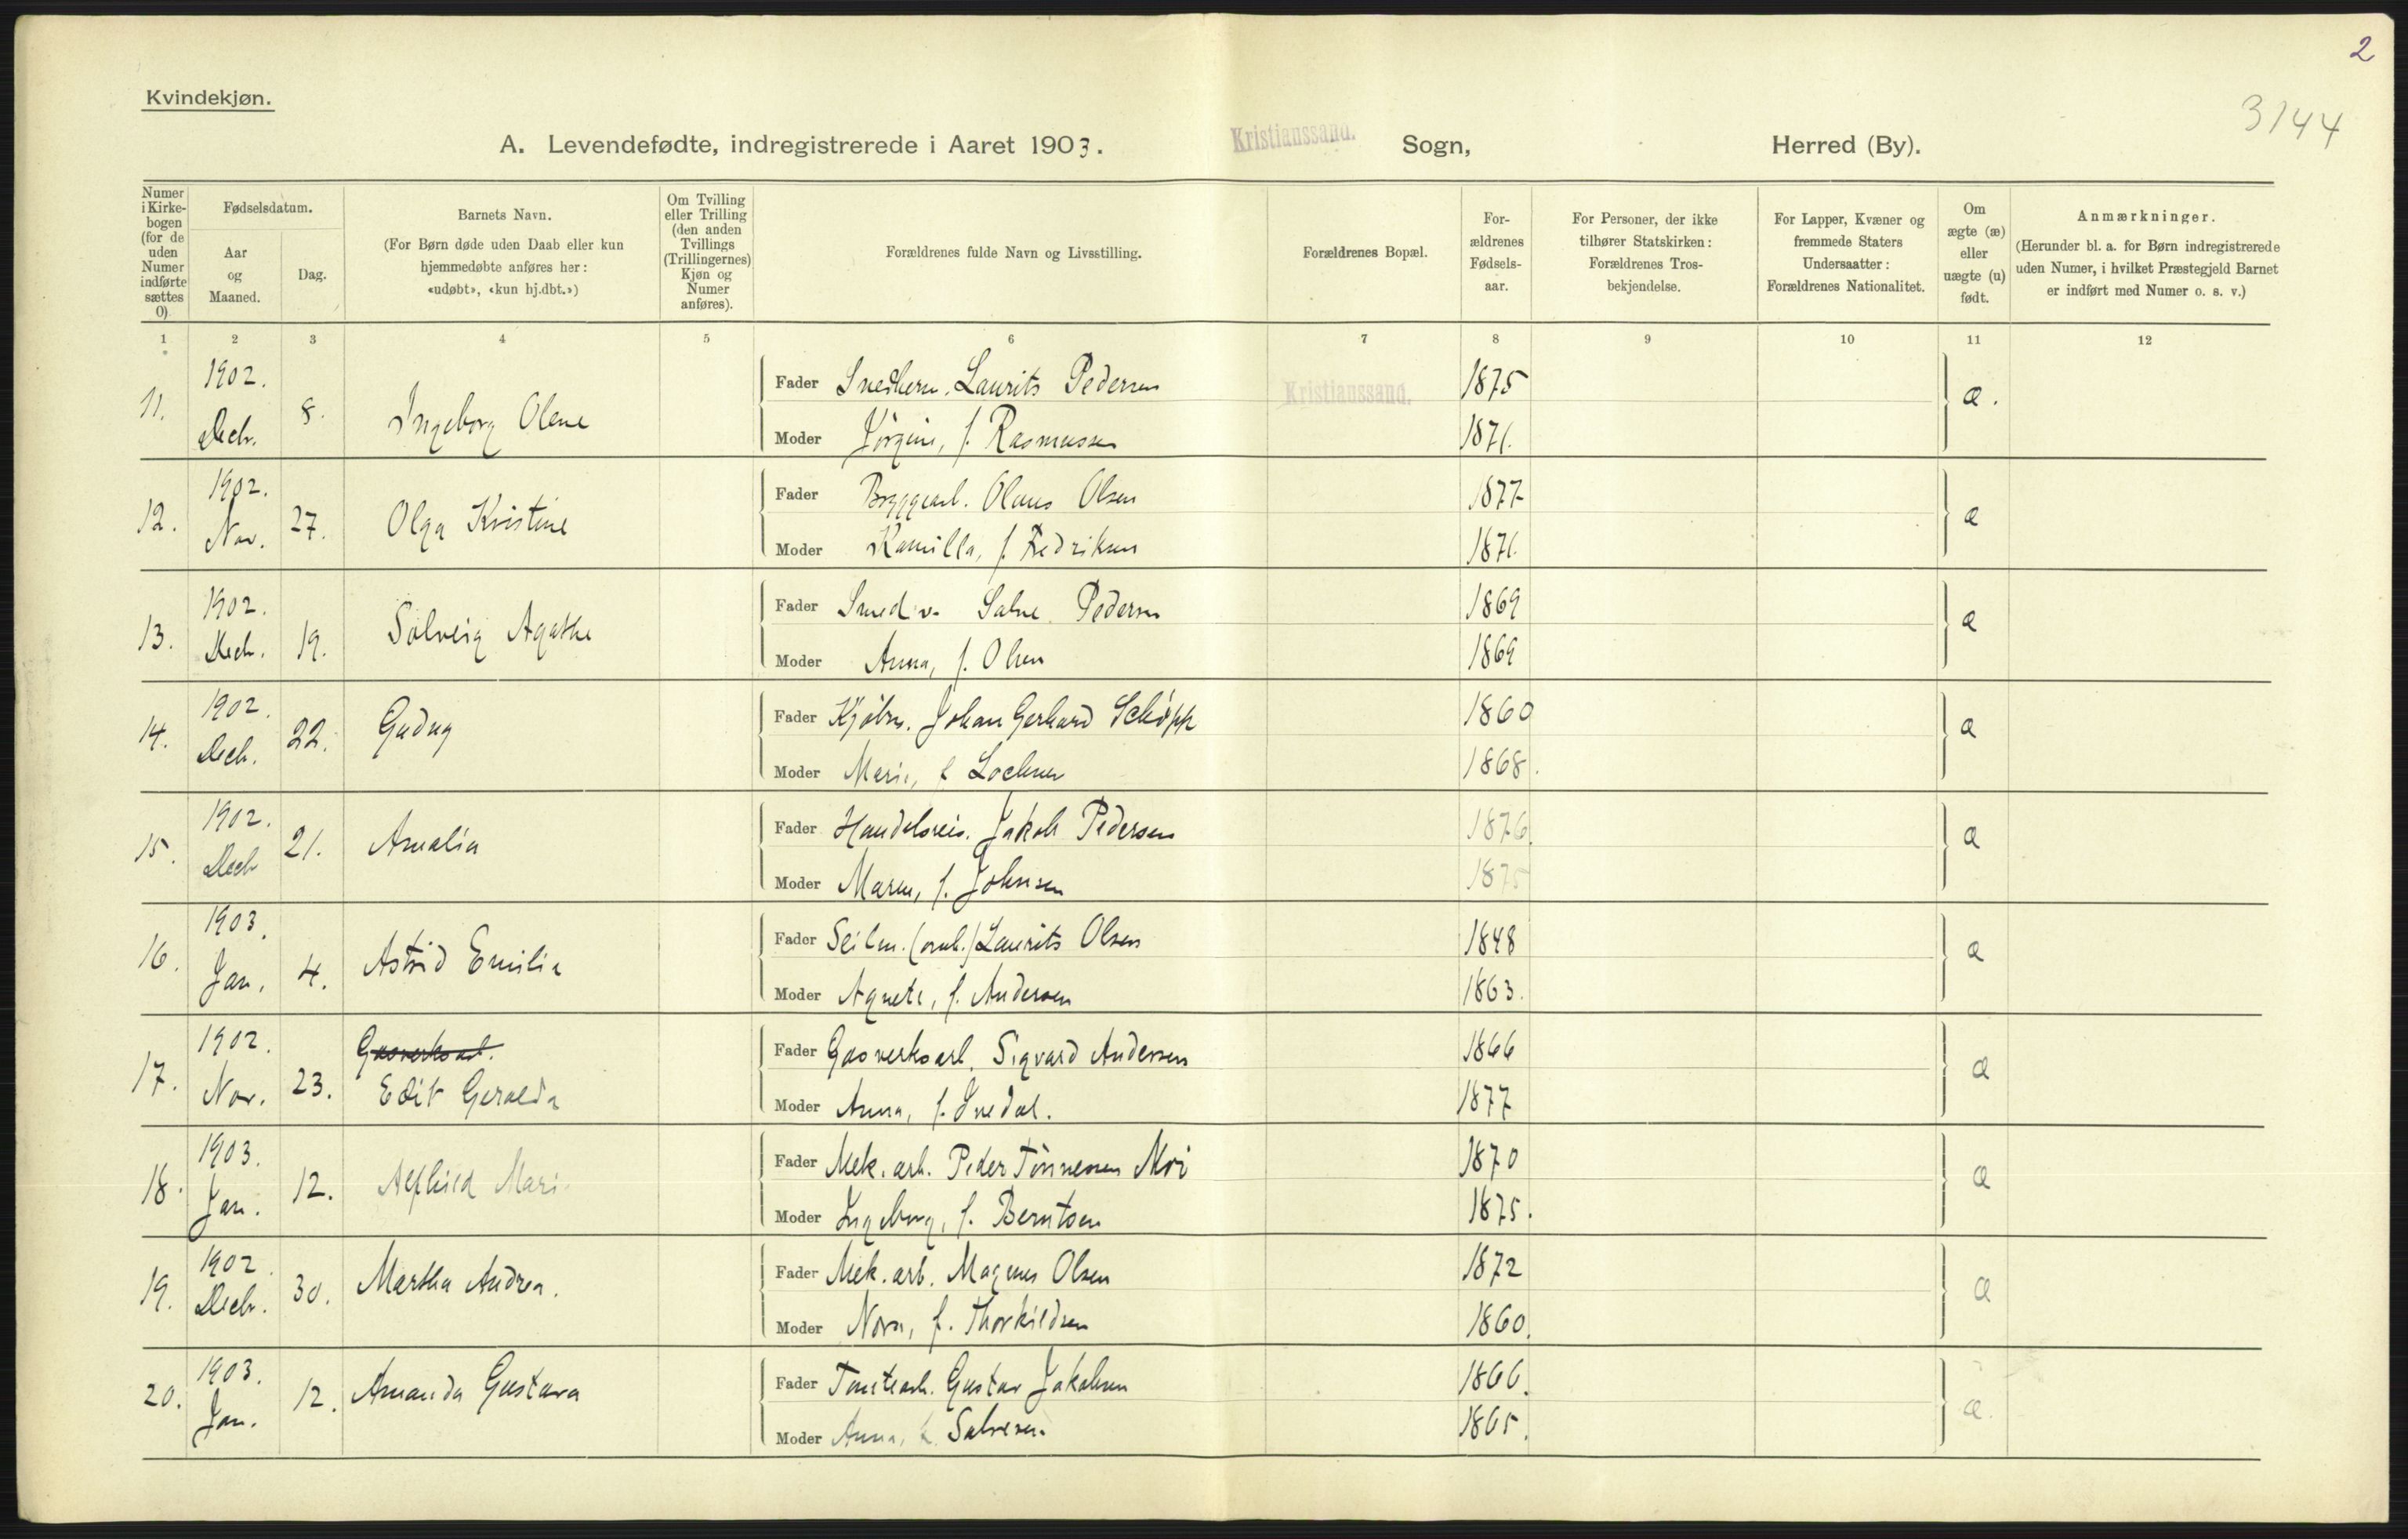 2
3144
Kvindekjøn.
A. Levendefødte, indregistrerede i Aaret 1903. Kristianssand. Sogn, Herred (By).
Numer i Kirke-bogen (for de uden Numer indførte sættes 0)
Fødselsdatum.
Aar og Maaned.
Dag.
Barnets Navn.
(For Børn døde uden Daab eller kun
hjemmedøbte anføres her:
«udøbt», «kun hj.dbt.»)
Om Tvilling
eller Trilling
(den anden
Tvillings
(Trillingernes)
Kjøn og
Numer
anføres).
Forældrenes fulde Navn og Livsstilling.
Forældrenes Bopæl.
For-
ældrenes
Fødsels-
aar.
For Personer, der ikke
tilhører Statskirken:
Forældrenes Tros-
bekjendelse.
For Lapper, Kvæner og
fremmede Staters
Undersaatter:
Forældrenes Nationalitet.
Om
ægte (æ)
eller
uægte (u)
født.
Anmærkninger.
(Herunder bl. a. for Børn indregistrerede
uden Numer, i hvilket Præstegjeld Barnet
er indført med Numer o. s. v.)
1 2 3 4 5 6 7 8 9 10 11 12
11. 1902. Decb. 8. Ingeborg Olene
Fader Snedkerm. Laurits Pedersen Kristianssand. 1875 æ.
Moder Jörgine, f. Rasmussen 1871.
12. 1902. Nov. 27. Olga Kristine
Fader Bryggearb. Olaus Olsen 1877 æ
Moder Kamilla, f. Fredriksen 1871.
13. 1902. Decb. 19. Solveig Agathe
Fader Smedsv. Salve Pedersen 1869 æ
Moder Anna, f. Olsen 1869
14. 1902. Decb. 22. Gudny
Fader Kjøbm. Johan Gerhard Schöpp 1860 æ
Moder Marie, f. Lochner 1868.
15. 1902. Decb 21. Amalia
Fader Handelsreis. Jakob Pedersen 1876. æ
Moder Maren, f. Johnsen 1875
16. 1903. Jan. 4. Astrid Emilie
Fader Seilm. (omb.) Laurits Olsen 1848 æ
Moder Agnete, f. Andersen 1863.
17. 1902. Nov. 23. Gasverksarb. Edit Geralda
Fader Gasverksarb. Sigvard Andersen 1866 æ
Moder Anna, f. Suedal. 1877
18. 1903. Jan. 12. Alfhild Mari
Fader Mek. arb. Peder Tönnesen Moi 1870 æ
Moder Ingeborg, f. Berntsen 1875.
19. 1902. Decb. 30. Martha Andrea.
Fader Mek. arb. Magnus Olsen 1872 æ
Moder Nora, f. Thorkildsen 1860.
20. 1903. Jan. 12. Amanda Gustava
Fader Tomtearb. Gustav Jakobsen 1866. æ.
Moder Anna, f. Salvesen. 1865.